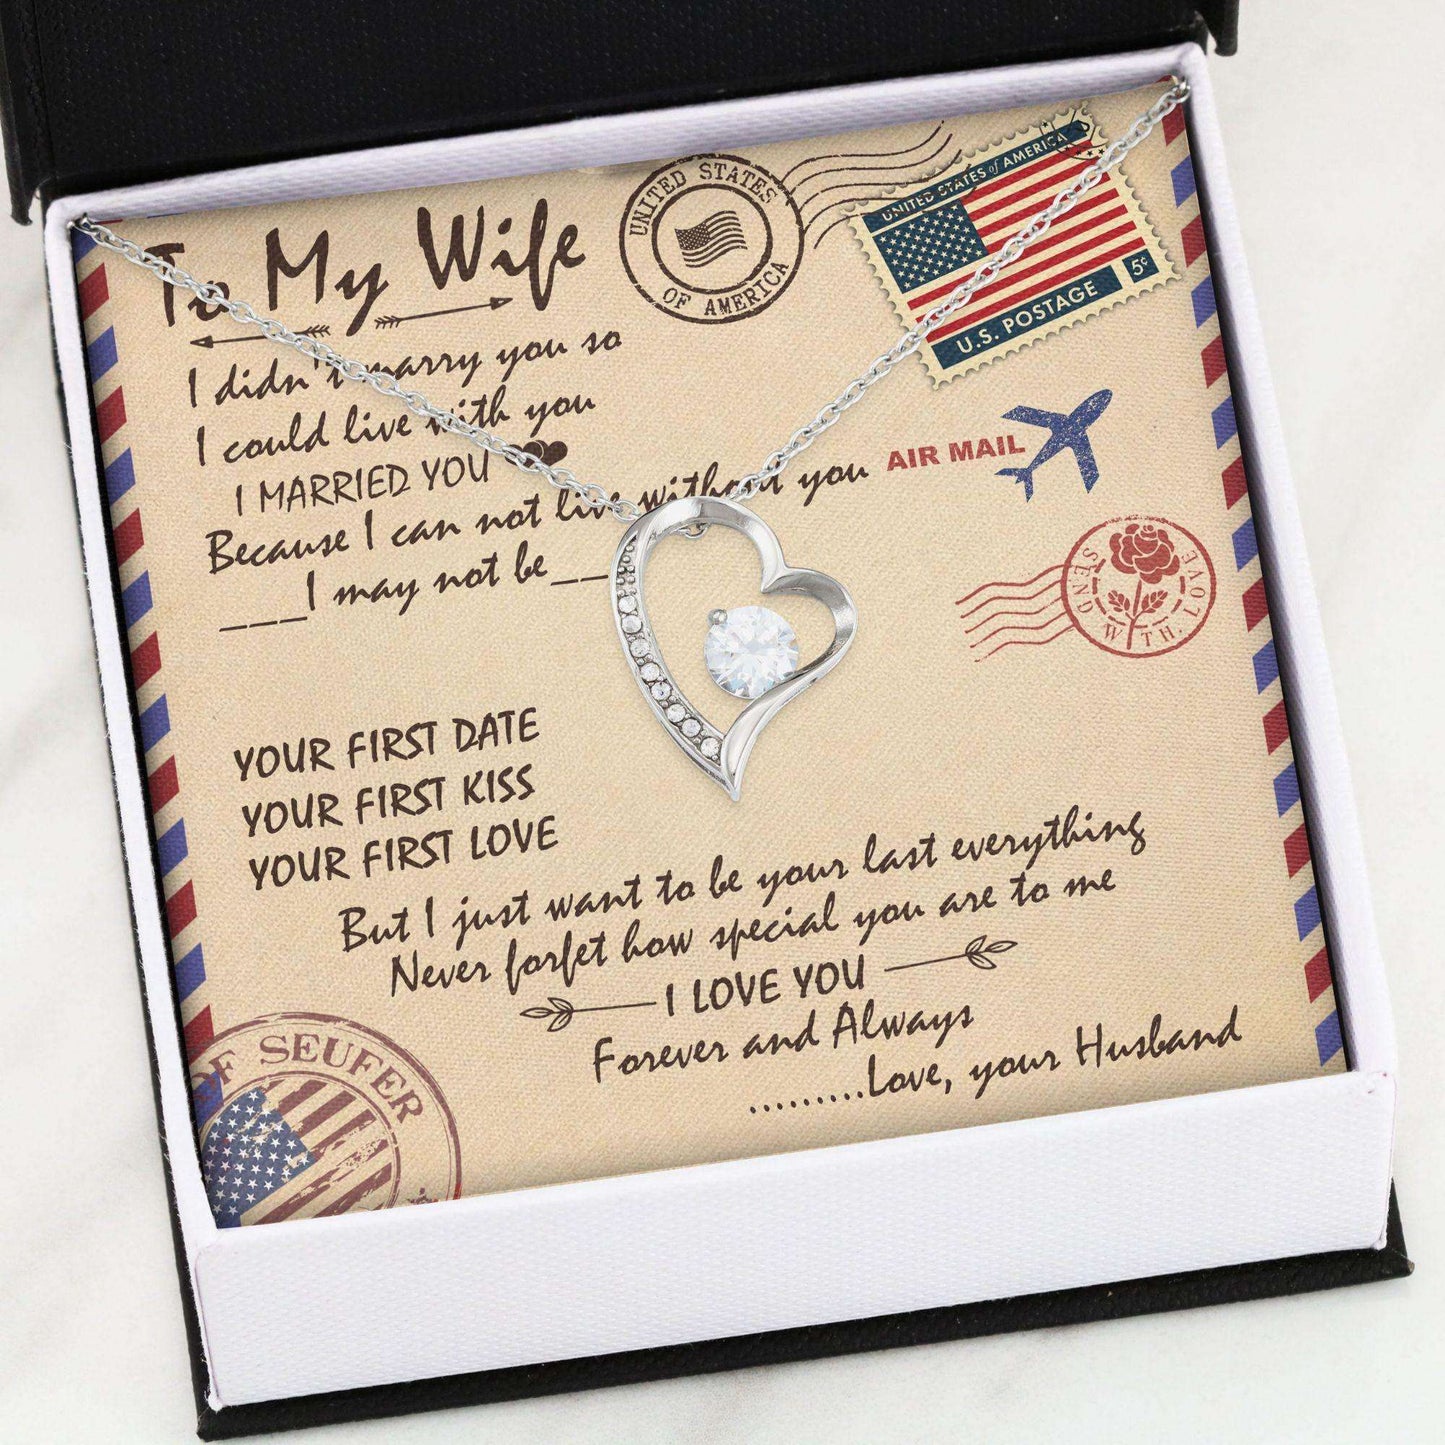 To My Wife
I didn't marry you so
I could live with you
I MARRIED YOU
Because I can not live without you
___I may not be__
YOUR FIRST DATE
YOUR FIRST KISS
YOUR FIRST LOVE
But I just want to be your last everything
Never forfet how special you are to me
I LOVE YOU
Forever and Always
.........Love, your Husband
UNITED STATES
OF AMERICA
UNITED STATES of AMERICA
5¢
U.S. POSTAGE
AIR MAIL
SEND WITH LOVE
OF SEUFER